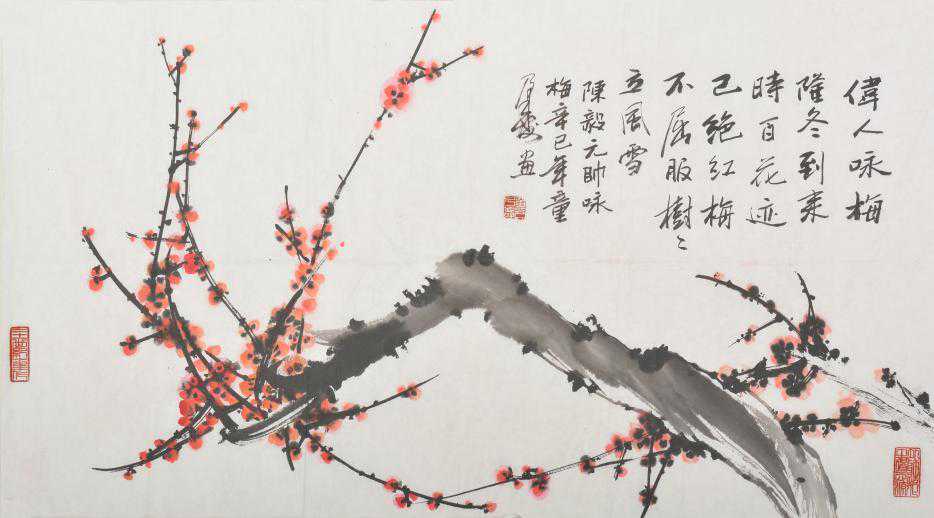 偉人咏梅
隆冬到来
時百花迹
已絕紅梅
不屈服樹〻
立風雪
陳毅元帥咏
梅辛巳年童
画